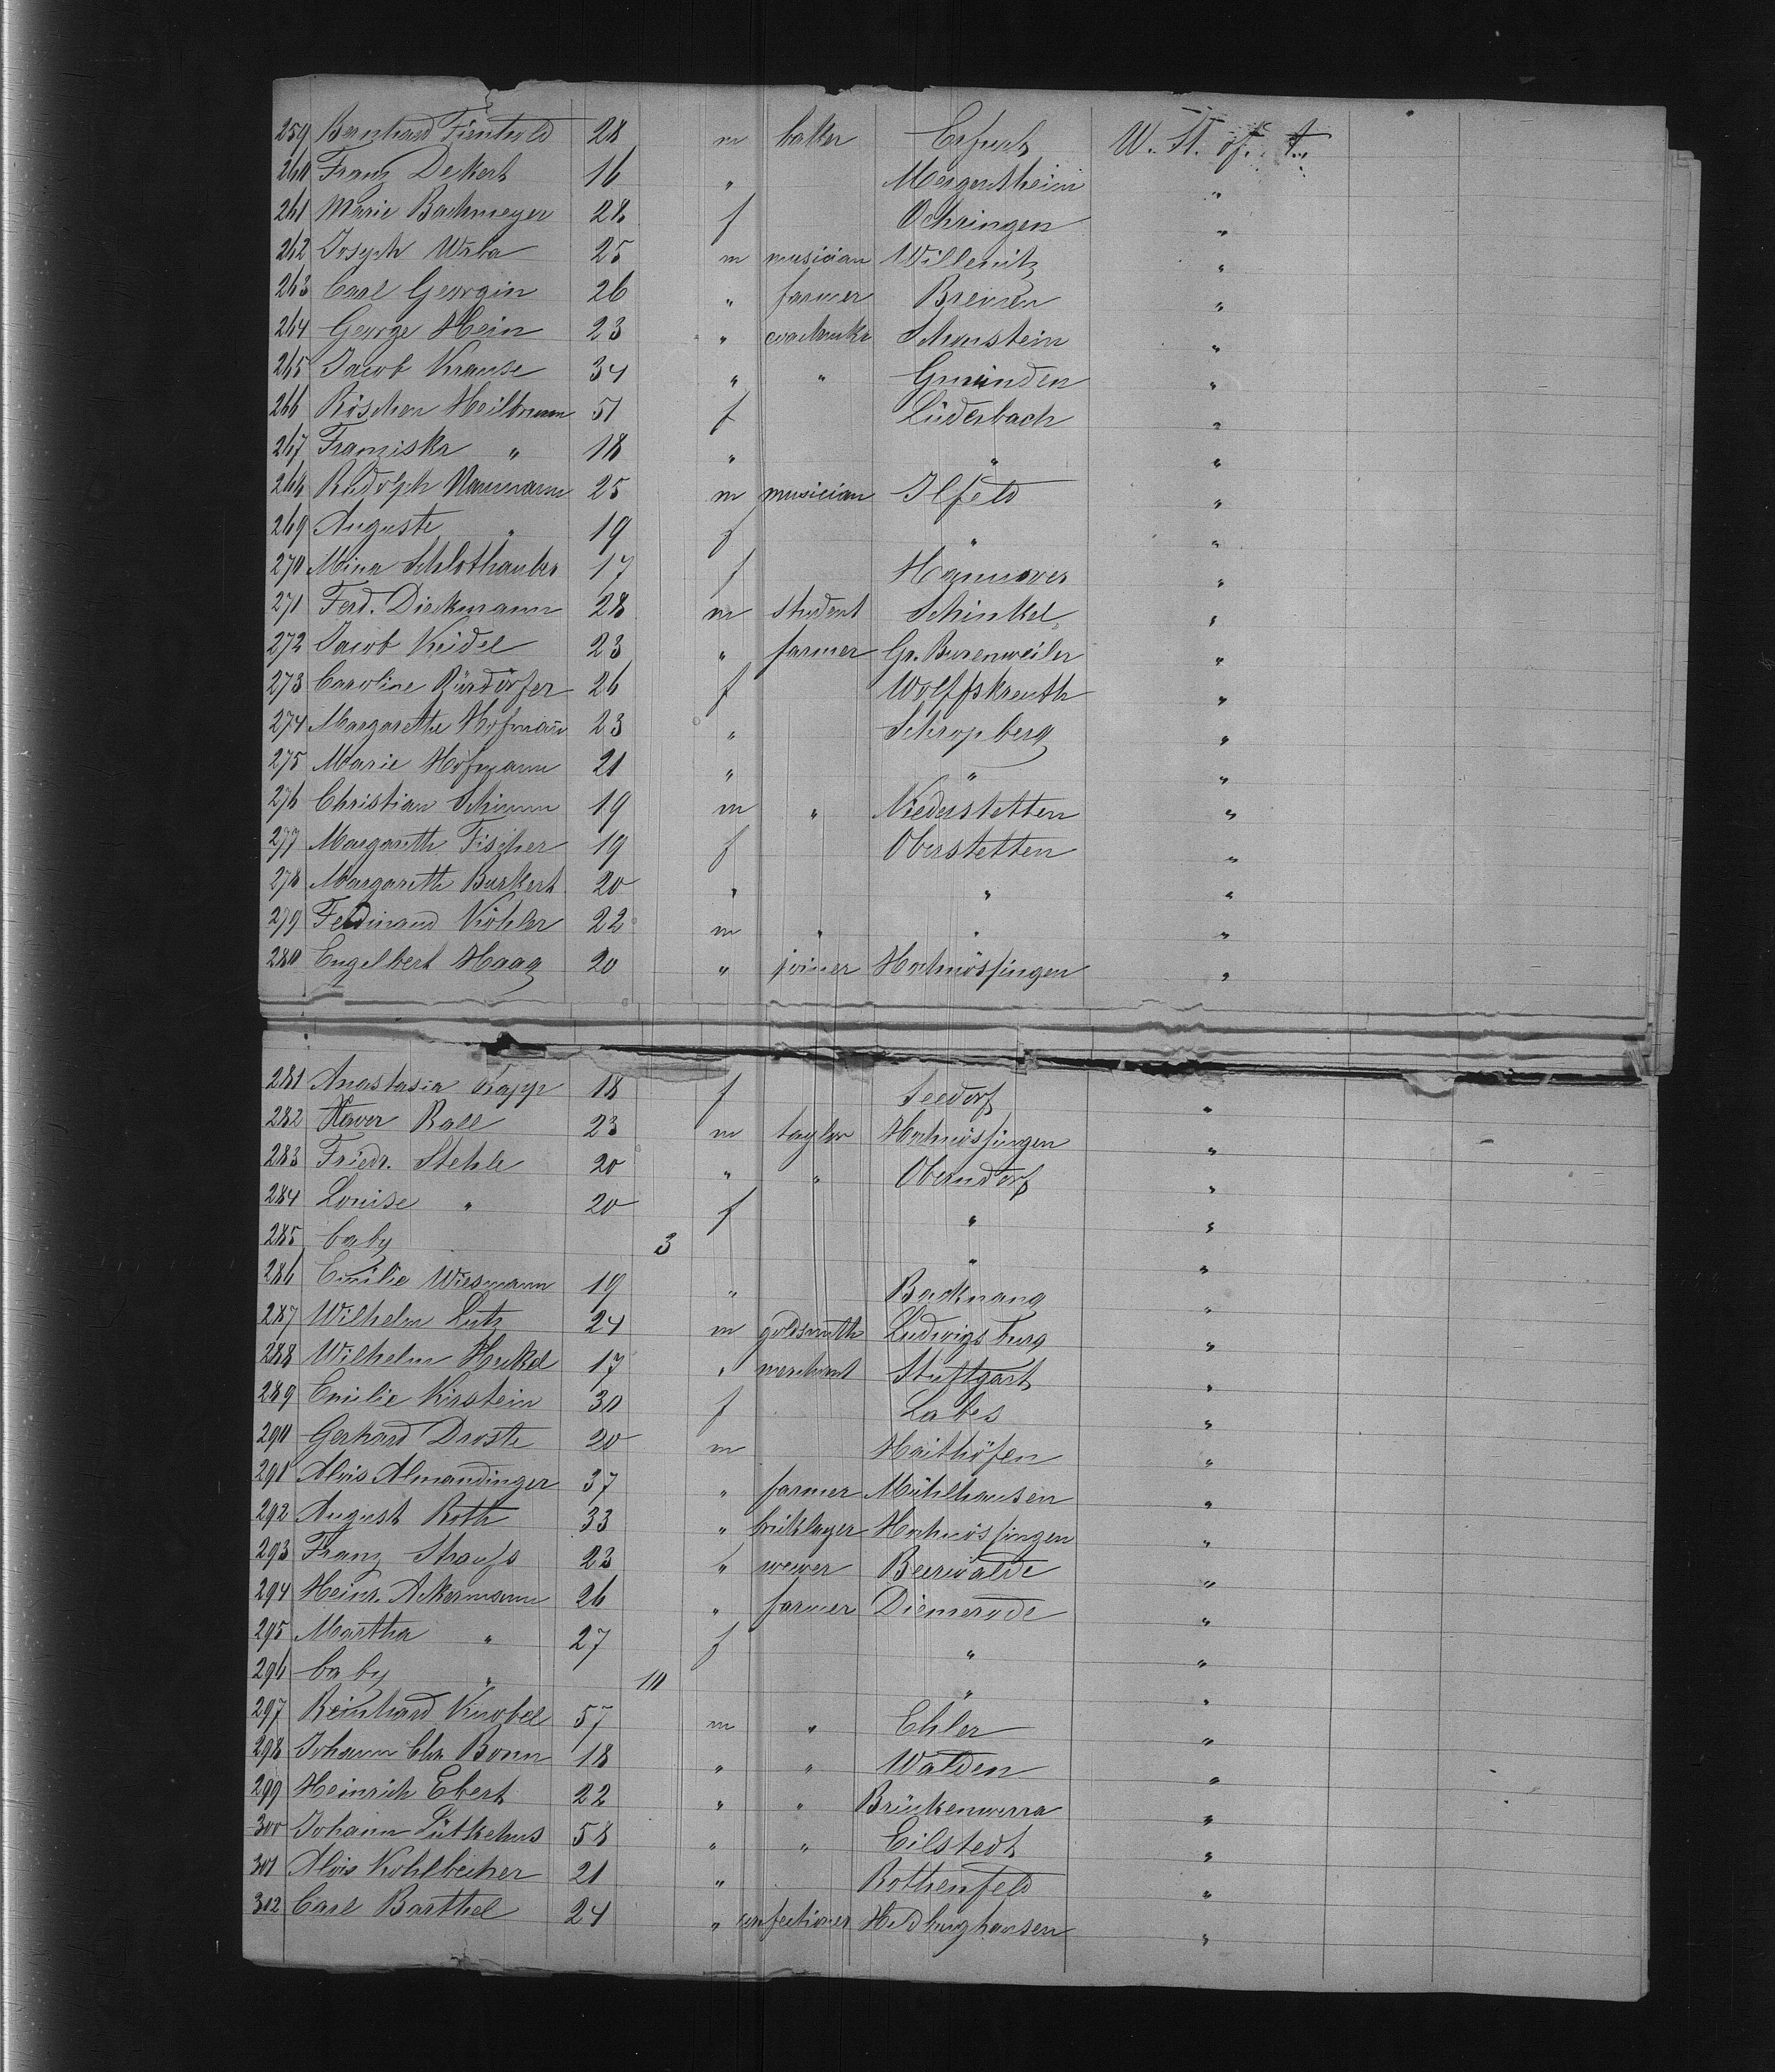 259 Bernhard 28 m baker Erfurt W. St. of
260 Franz Dekert 16 " Mergentheim "
261 Marie Bachmeyer 28 f Oehringen "
262 Joseph Wrba 25 m musician Willenitz "
263 Carl Georgin 26 " farmer Bremen "
264 George Hein 23 " Scharstein "
265 Jacob Krause 34 " " Gmünden "
266 Röschen Heilbrunn 51 f Lüderbach "
267 Franziska " 18 " " "
268 Rudolph Naumann 25 m musician Ilfeld "
269 Auguste " 19 f " "
270 Mina Schlothauber 17 f Hannover "
271 Ferd. Dieckmann 28 m student Schinkel "
272 Jacob Keidel 23 " farmer Gr. Burenweiler "
273 Caroline Bürdörfer 26 f Wolffskreuth "
274 Margarethe Hofmañ 23 " Schropberg "
275 Marie Hofmann 21 " " "
276 Christian Schumm 19 m " Niederstetten "
277 Margareth Fischer 19 f Oberstetten "
278 Margareth Burkert 20 " " "
279 Ferdinand Köhler 22 m " " "
280 Engelbert Haag 20 " joiner Hochmössingen "
281 Anastasia Rapp 18 f Seedorf "
282 Xaver Rall 23 m taylor Hochmössingen "
283 Friedr. Stehle 20 " " Oberndorf "
284 Louise " 20 f " "
285 baby 3 " "
286 Emilie Wiesmann 19 " Backnang "
287 Wilhelm Lutz 24 m goldsmith Ludwigsburg "
288 Wilhelm Henkel 17 " merchant Stuttgart "
289 Emilie Kirstein 30 f Labes "
290 Gerhard Droste 20 m Haithöfen "
291 Alois Almandinger 37 " farmer Mühlhausen "
292 August Roth 33 " briklayer Hochmössingen "
293 Franz Strauss 23 " wewer Beerwalde "
294 Heinr. Ackermann 26 " farmer Diemerode "
295 Martha " 27 f " "
296 baby " 10 " "
297 Reinhard Knobel 57 m " Ehler "
298 Johann Chr. Bonn 18 " " Walden "
299 Heinrich Ebert 22 " " Brückenwerra "
300 Johann Lütkehus 58 " " Eilstedt "
301 Alois Kohlbecher 21 " Rothenfeld "
302 Carl Barthel 24 " confectioner Hildburghausen "